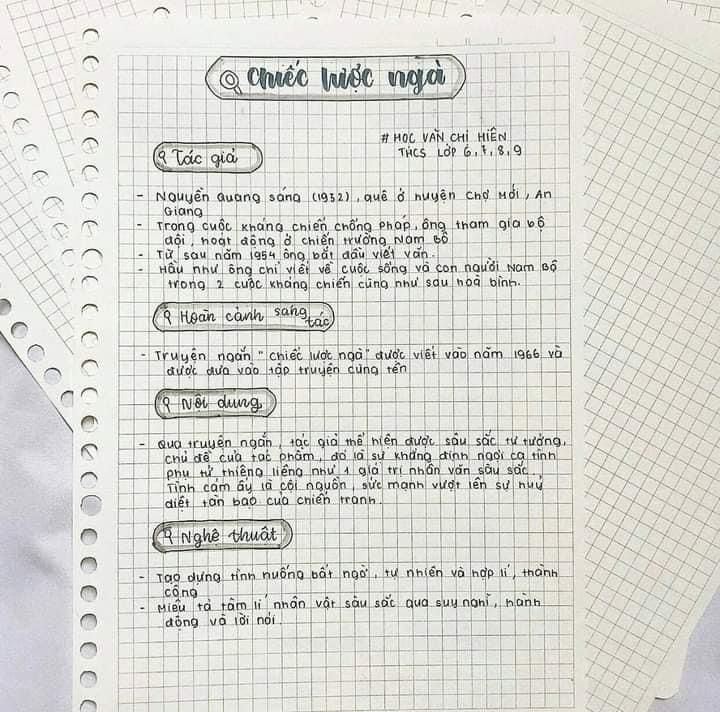 chiếc lược ngà
# HỌC VĂN CHỊ HIÊN
THCS LỚP 6,7,8,9
Tác giả
- Nguyễn Quang Sáng (1932), quê ở huyện Chợ Mới, An
Giang
- Trong cuộc kháng chiến chống Pháp, ông tham gia bộ
đội, hoạt động ở chiến trường Nam Bộ
- Từ sau năm 1954 ông bắt đầu viết văn.
- Hầu như ông chỉ viết về cuộc sống và con người Nam Bộ
trong 2 cuộc kháng chiến cũng như sau hoà bình.
Hoàn cảnh sáng tác
- Truyện ngắn "chiếc lược ngà" được viết vào năm 1966 và
được đưa vào tập truyện cùng tên
Nội dung
- Qua truyện ngắn, tác giả thể hiện được sâu sắc tư tưởng,
chủ đề của tác phẩm, đó là sự khẳng định ngợi ca tình
phụ tử thiêng liêng như 1 giá trị nhân văn sâu sắc.
Tình cảm ấy là cội nguồn, sức mạnh vượt lên sự huỷ
diệt tàn bạo của chiến tranh.
Nghệ thuật
- Tạo dựng tình huống bất ngờ, tự nhiên và hợp lí, thành
công
- Miêu tả tâm lí nhân vật sâu sắc qua suy nghĩ, hành
động và lời nói.